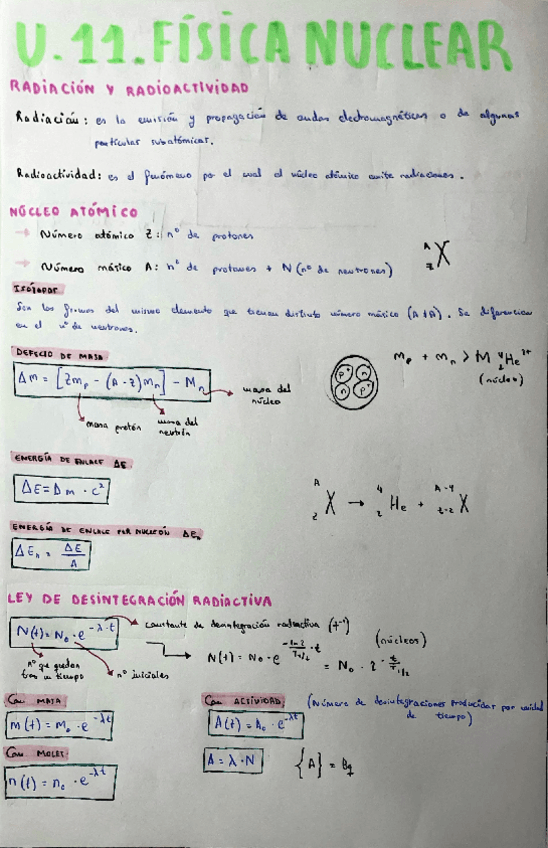 U.11. FÍSICA NUCLEAR
RADIACIÓN Y RADIOACTIVIDAD
Radiación: es la emisión y propagación de ondas electromagnéticas o de algunas
partículas subatómicas.
Radioactividad: es el fenómeno por el cual el núcleo atómico emite radiaciones.
NÚCLEO ATÓMICO
→ Número atómico Z: nº de protones
→ Número másico A: nº de protones + N (nº de neutrones)
A
Z X
Isótopos
Son las formas del mismo elemento que tienen distinto número másico (A ≠ A). Se diferencian
en el nº de neutrones.
DEFECTO DE MASA
Δm = [Zmp - (A-Z)mn] - Mn
masa del
núcleo
masa protón
masa del
neutrón
p+ n
n p+
mp + mn > M ⁴₂He²⁺
(núcleo)
ENERGÍA DE ENLACE ΔE
ΔE = Δm · c²
A
Z X → ⁴₂He + ᴬ⁻⁴
Z-2 X
ENERGÍA DE ENLACE POR NUCLEÓN ΔEn
ΔEn = ΔE/A
LEY DE DESINTEGRACIÓN RADIACTIVA
N(t) = N₀ · e^-λ·t
constante de desintegración radiactiva (t⁻¹)
nº que quedan
tras un tiempo
nº iniciales
N(t) = N₀ · e^(-ln 2/T1/2 · t) = N₀ · 2^(-t/T1/2)
(núcleos)
Con MASA
m(t) = m₀ · e^-λt
Con ACTIVIDAD
(Número de desintegraciones producidas por unidad
de tiempo)
A(t) = A₀ · e^-λt
Con MOLES
n(t) = n₀ · e^-λt
A = λ · N
{A} = Bq